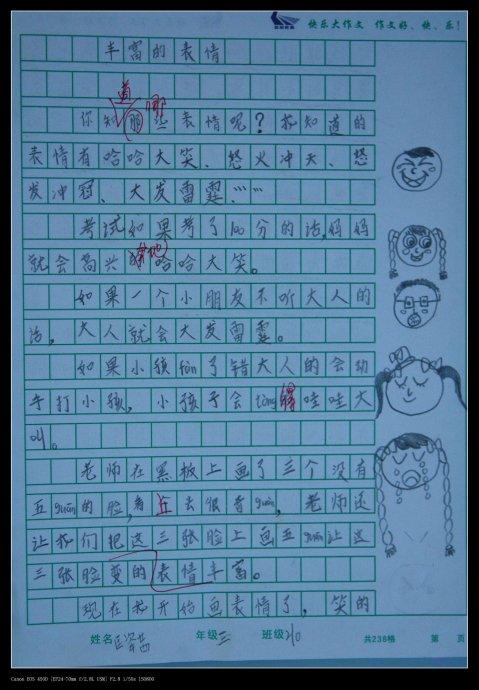 快乐大作文 作文好、快、乐!
丰富的表情
道 哪
你知那些表情呢?我知道的
表情有哈哈大笑、怒火冲天、怒
发冲冠、大发雷霆……
考试如果考了100分的话,妈妈
就会高兴地哈哈大笑。
如果一个小朋友不听大人的
话,大人就会大发雷霆。
如果小孩fàn了错大人的会动
手打小孩,小孩子会tòng得哇哇大
叫。
老师在黑板上画了三个没有
五guān的脸,看上去很奇guài,老师还
让我们把这三张脸上画五guān让这
三张脸变的表情丰富。
现在我开始画表情了,笑的
姓名 年级三 班级 共238格 第 页
Canon EOS 450D [EF24-70mm f/2.8L USM] F2.8 1/50s ISO800